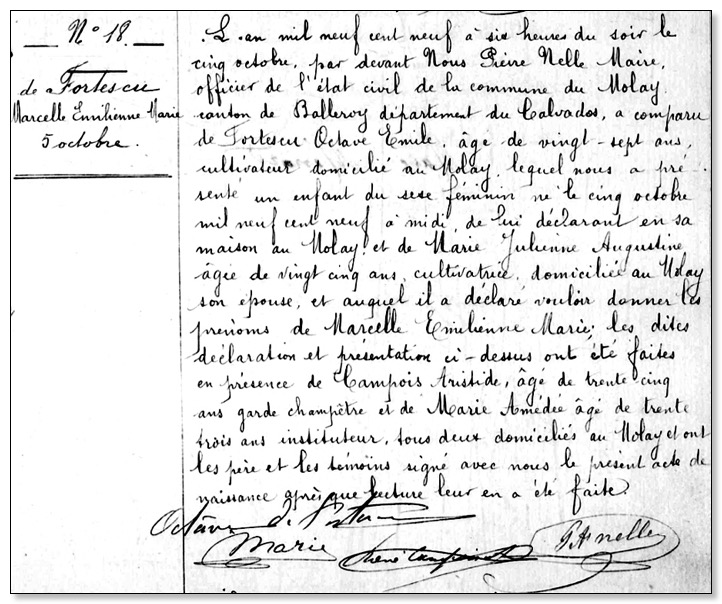 N° 18.
de Fortescu
Marcelle Emilienne Marie
5 octobre.
L'an mil neuf cent neuf à six heures du soir le
cinq octobre, par devant Nous Pierre Nelle Maire,
officier de l'état civil de la commune du Molay
canton de Balleroy département du Calvados, a comparu
de Fortescu Octave Emile, âgé de vingt-sept ans,
cultivateur domicilié au Molay, lequel nous a pré-
senté un enfant du sexe féminin né le cinq octobre
mil neuf cent neuf à midi, de lui déclarant en sa
maison au Molay, et de Marie Julienne Augustine
âgée de vingt cinq ans, cultivatrice, domiciliée au Molay
son épouse, et auquel il a déclaré vouloir donner les
prénoms de Marcelle Emilienne Marie; les dites
déclaration et présentation ci-dessus ont été faites
en présence de Campois Aristide, âgé de trente cinq
ans garde champêtre et de Marie Amédée âgé de trente
trois ans instituteur, tous deux domiciliés au Molay et ont
les père et les témoins signé avec nous le présent acte de
naissance après que lecture leur en a été faite.
Octave de
Marie nelle